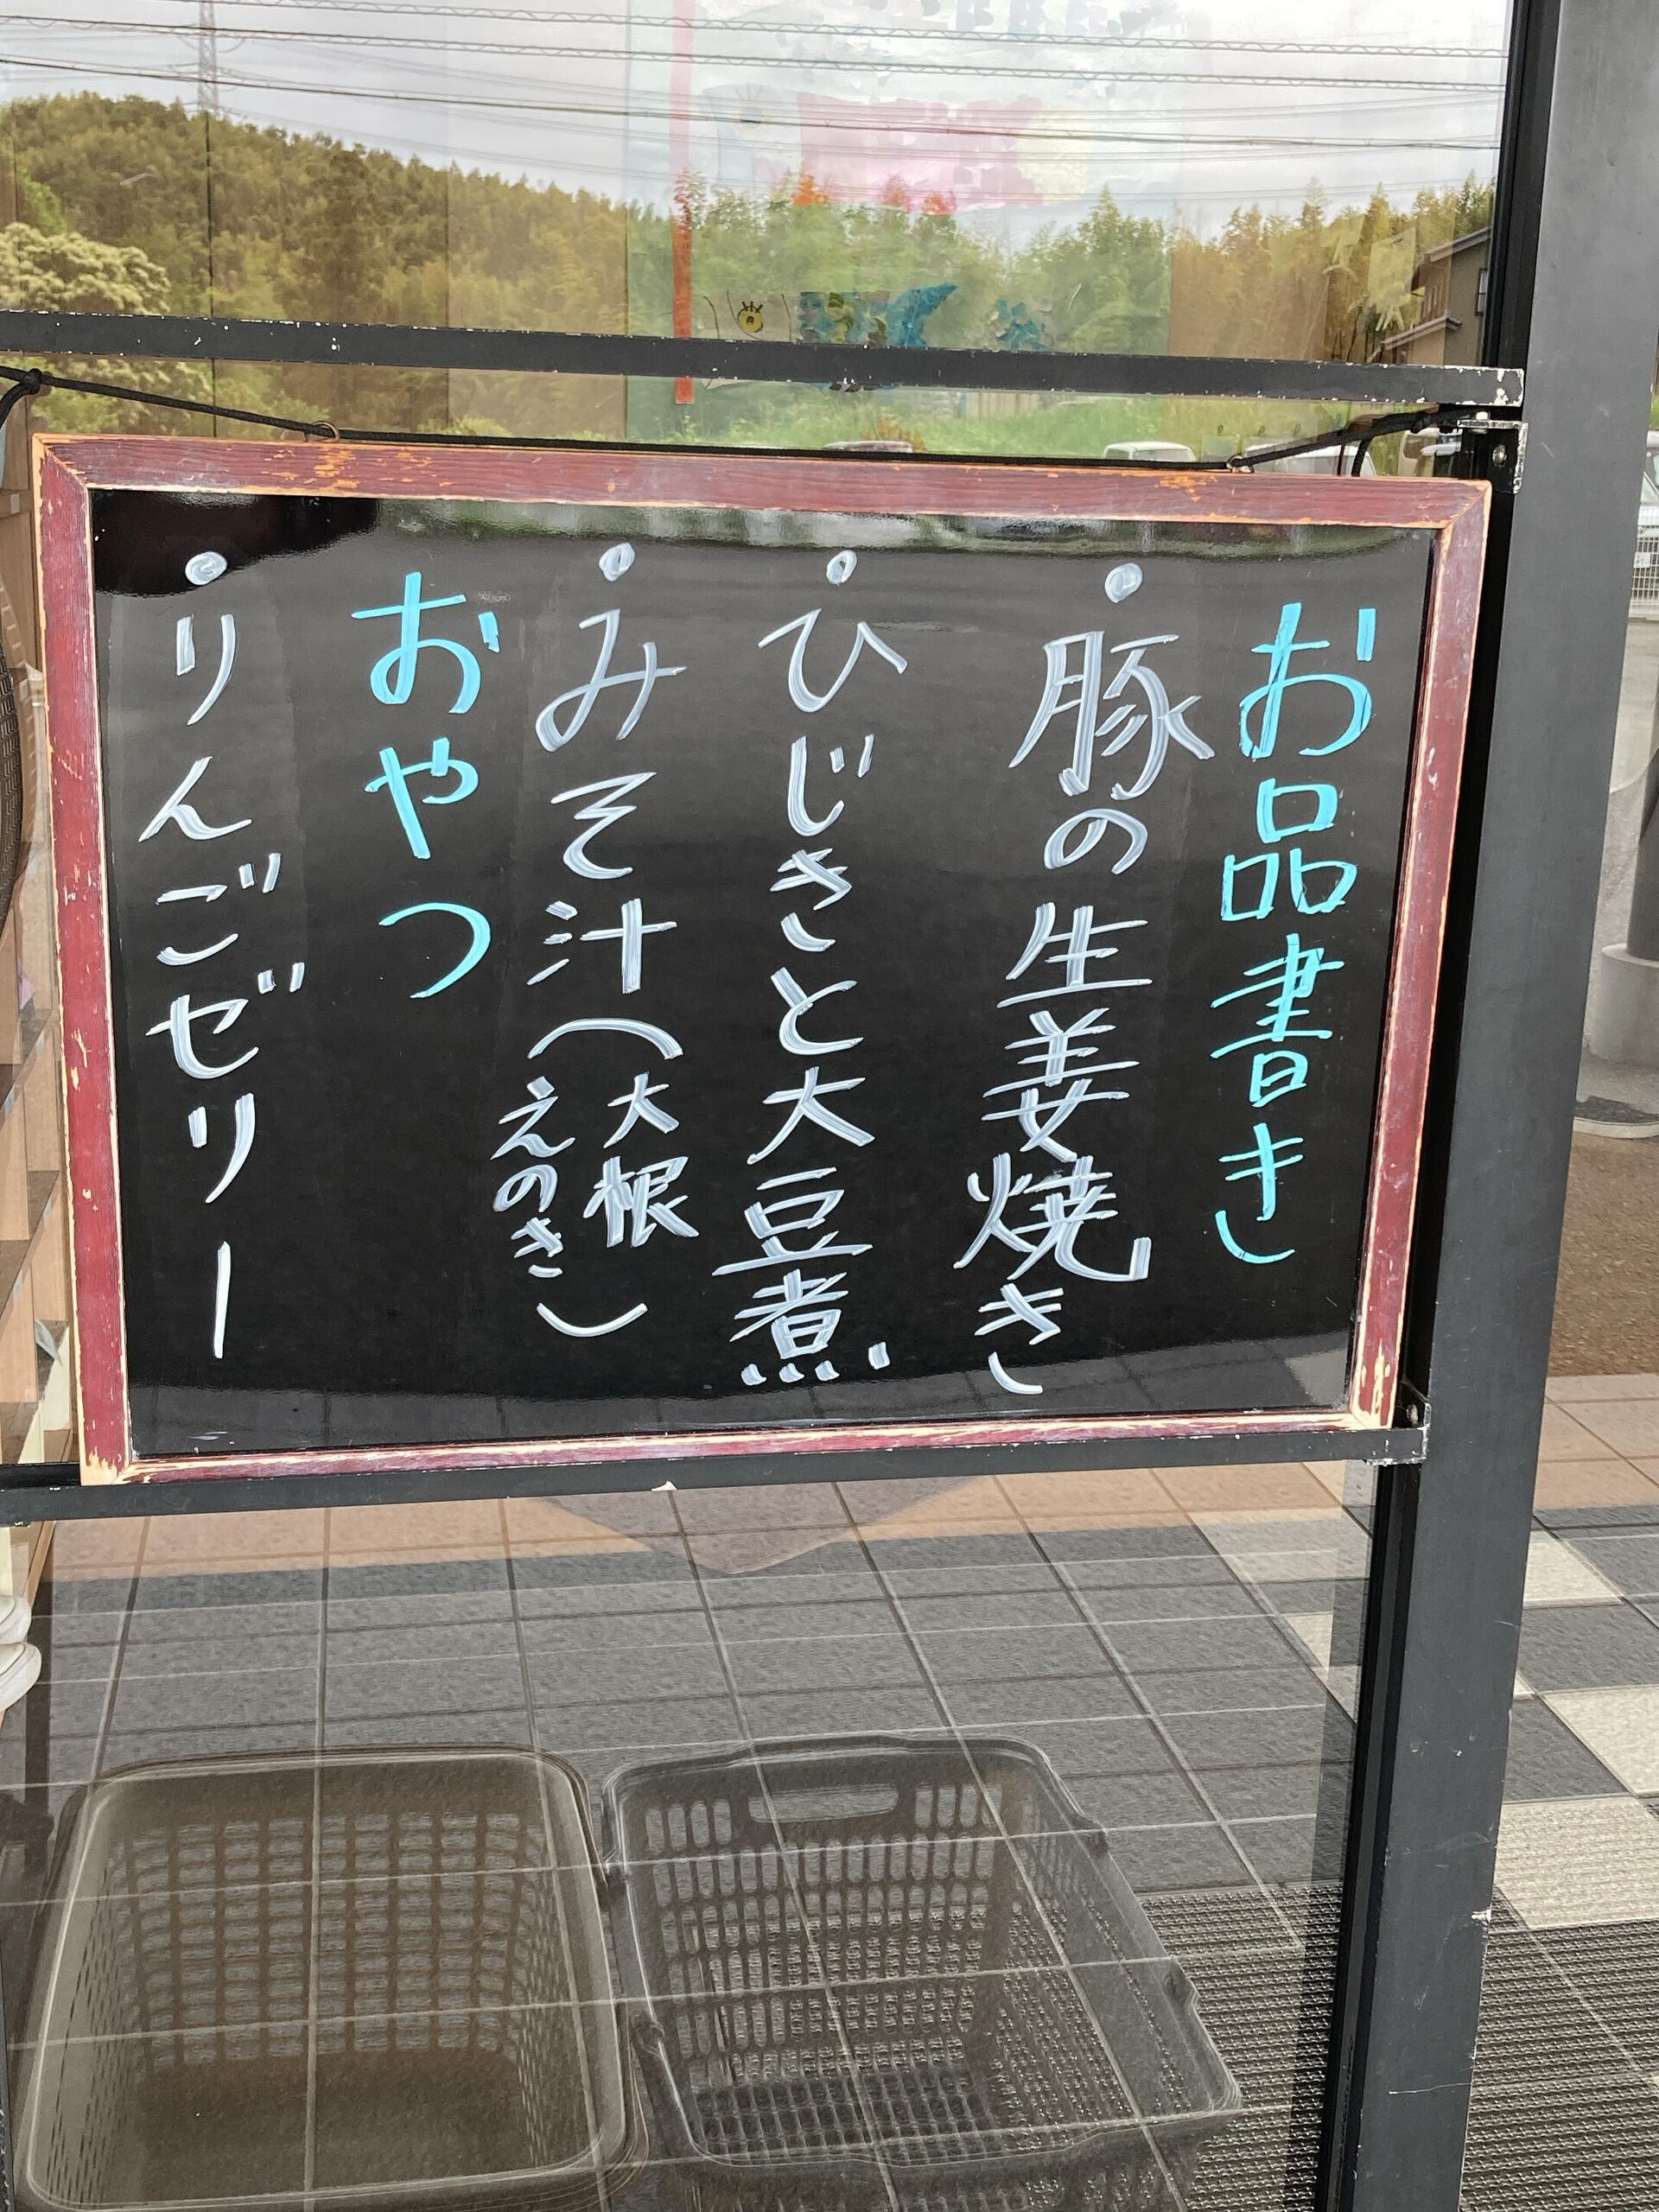 お品書き
・豚の生姜焼き
・ひじきと大豆煮
・みそ汁(大根
えのき)
おやつ
・りんごゼリー